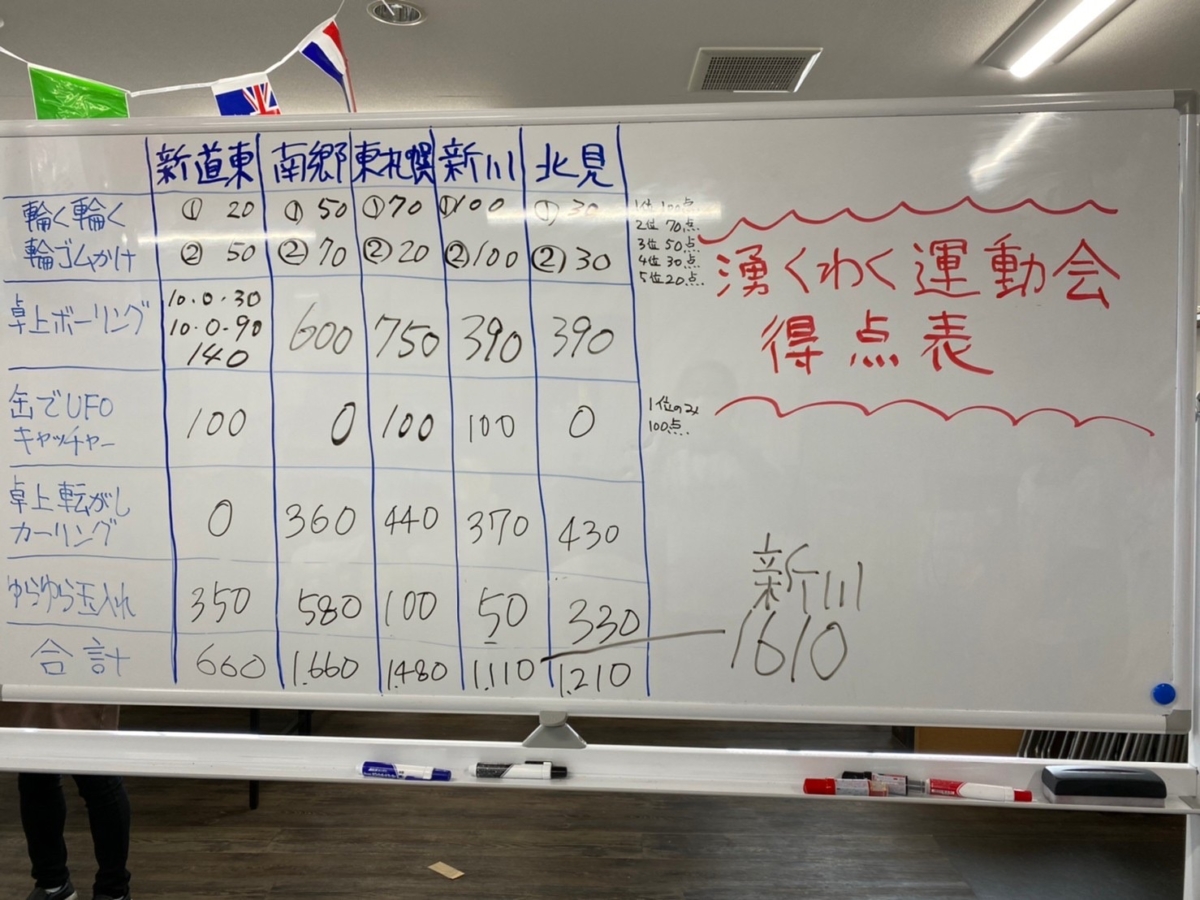 新道東 南郷 東札幌 新川 北見
輪く輪く ① 20 ① 50 ① 70 ① 100 ① 30
輪ゴムかけ ② 50 ② 70 ② 20 ② 100 ② 30
1位 100点
2位 70点
3位 50点
4位 30点
5位 20点
湧くわく運動会
得点表
卓上ボーリング 10.0.30 600 750 390 390
10.0.90
140
缶でUFO 100 0 100 100 0
キャッチャー
1位のみ
100点
卓上転がし 0 360 440 370 430
カーリング
ゆらゆら玉入れ 350 580 100 50 330
合計 660 1.660 1.480 1.110 1.210
新川
1610